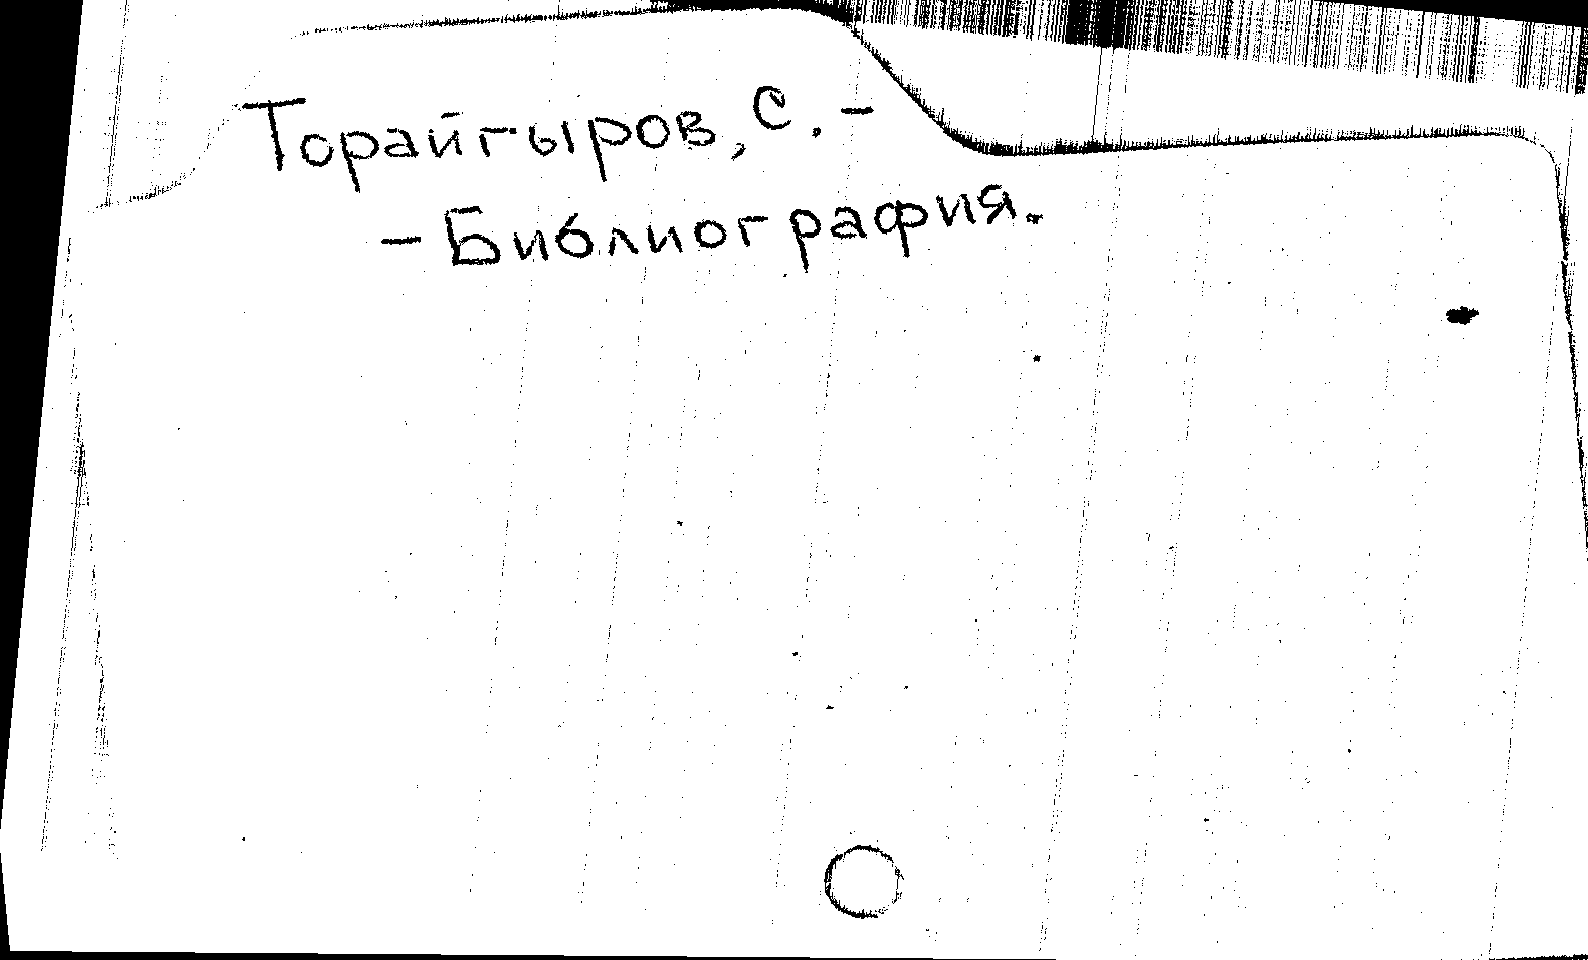 Торайгыров, С. -
- Библиография.